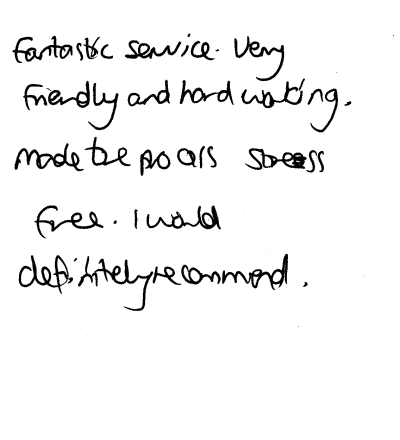 fantastic service. Very
friendly and hard working.
made the process stress
free. I would
definitely recommend.